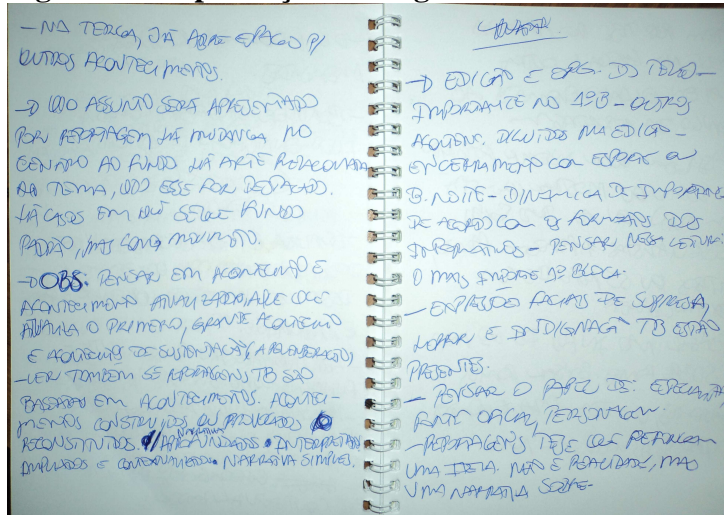 - NA TERÇA, JÁ ABRE ESPAÇO P/
OUTROS ACONTECIMENTOS.
ASSUNTO SERÁ APRESENTADO
POR REPORTAGEM HÁ MUDANÇA NO
CENÁRIO AO FUNDO HÁ ARTE RELACIONADA
AO TEMA, ESSE FOR DESTACADO.
HÁ CASOS EM QUE SEGUE FUNDO
PADRÃO, MAS COM MOVIMENTO.
OBS: PENSAR EM ACONTECIMENTO E
ACONTECIMENTO ATUALIZADO, AQUELE QUE
ATUALIZA O PRIMEIRO, GRANDE ACONTECIMENTO
E ACONTECIMENTOS DE SUSTENTAÇÃO,
- VER TAMBÉM SE REPORTAGENS TB SÃO
BASEADAS EM ACONTECIMENTOS. ACONTECI-
MENTOS CONSTRUÍDOS OU PROVOCADOS
RECONSTITUÍDOS. NARRATIVA APROFUNDADOS INTERPRETADOS
AMPLIADOS E CONTEXTUALIZADOS. NARRATIVA SIMPLES.
QUARTA
EDIÇÃO E ORG. DO TEMPO -
IMPORTANTE NO 1º B - OUTROS
ACONTECIMENTOS DILUÍDOS NA EDIÇÃO -
ENCERRAMENTO COM ESPORTE OU
B. NOITE - DINÂMICA DE IMPORTÂNCIA
DE ACORDO COM OS FORMATOS DOS
INFORMATIVOS - PENSAR NESSA LEITURA.
O MAIS IMPORTE 1º BLOCO.
- EXPRESSÕES FACIAIS DE SURPRESA,
HORROR E INDIGNAÇÃO TB ESTÃO
PRESENTES.
- PENSAR O PAPEL DE: ESPECIALISTA
FONTE OFICIAL, PERSONAGEM.
- REPORTAGENS TESE QUE REFORÇAM
UMA IDEIA. NÃO É REALIDADE, MAS
UMA NARRATIVA SOBRE-